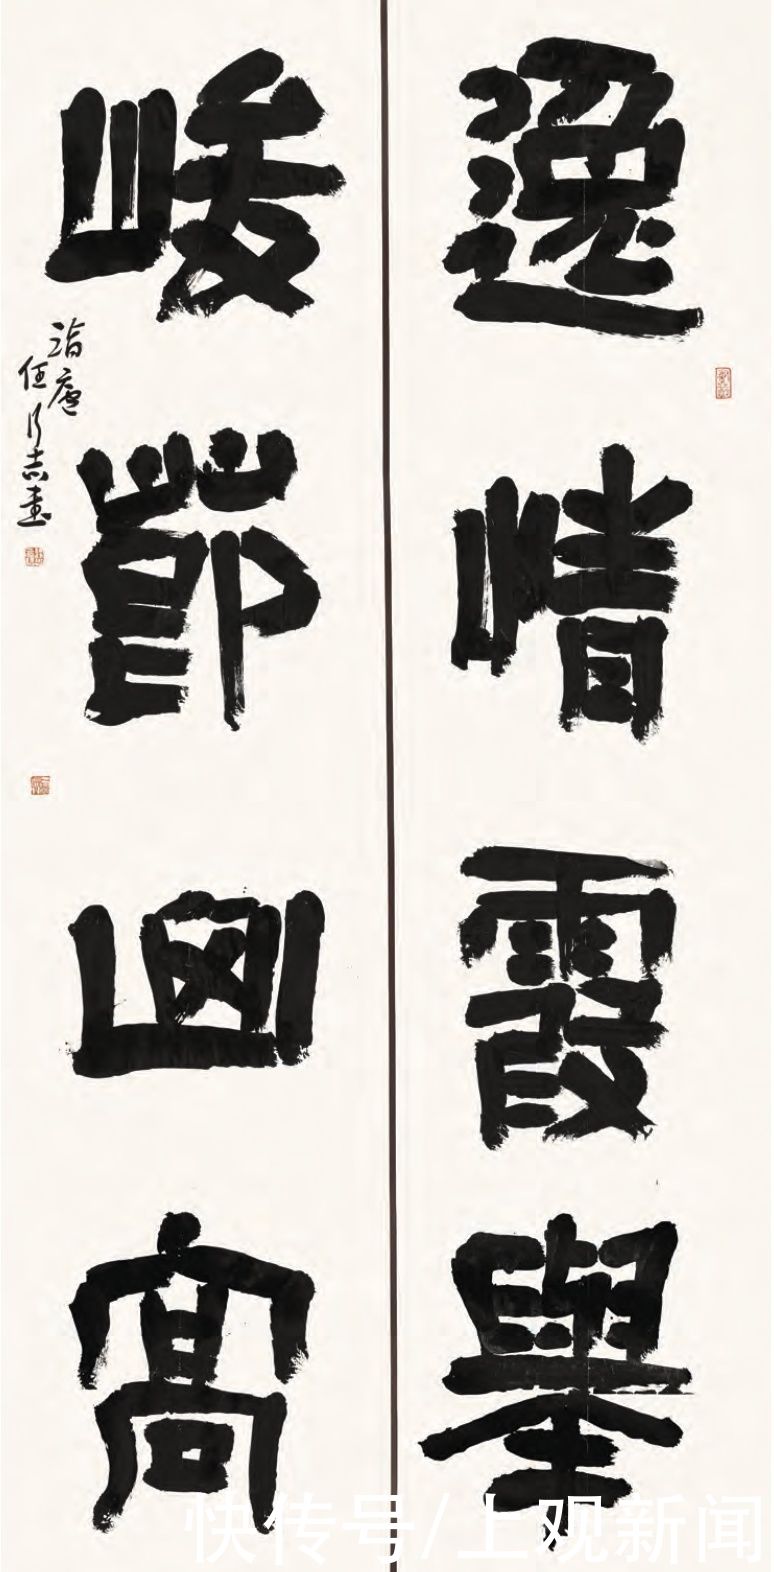 逸情霞舉
峻節高
任行志書
快传号/上观新闻